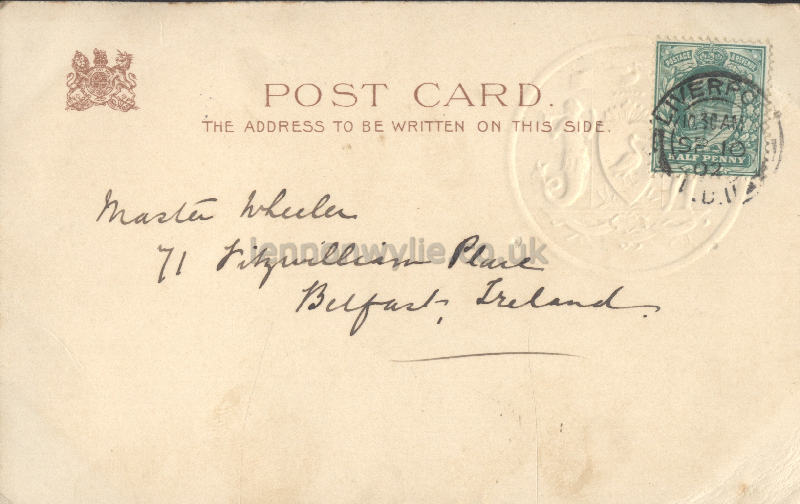 POST CARD.
THE ADDRESS TO BE WRITTEN ON THIS SIDE.
POSTAGE & REVENUE
HALF PENNY
LIVERPO
10.30 AM
SP 10
02
Master Wheeler
71 Fitzwilliam Place
Belfast, Ireland.
lennonwylie.co.uk